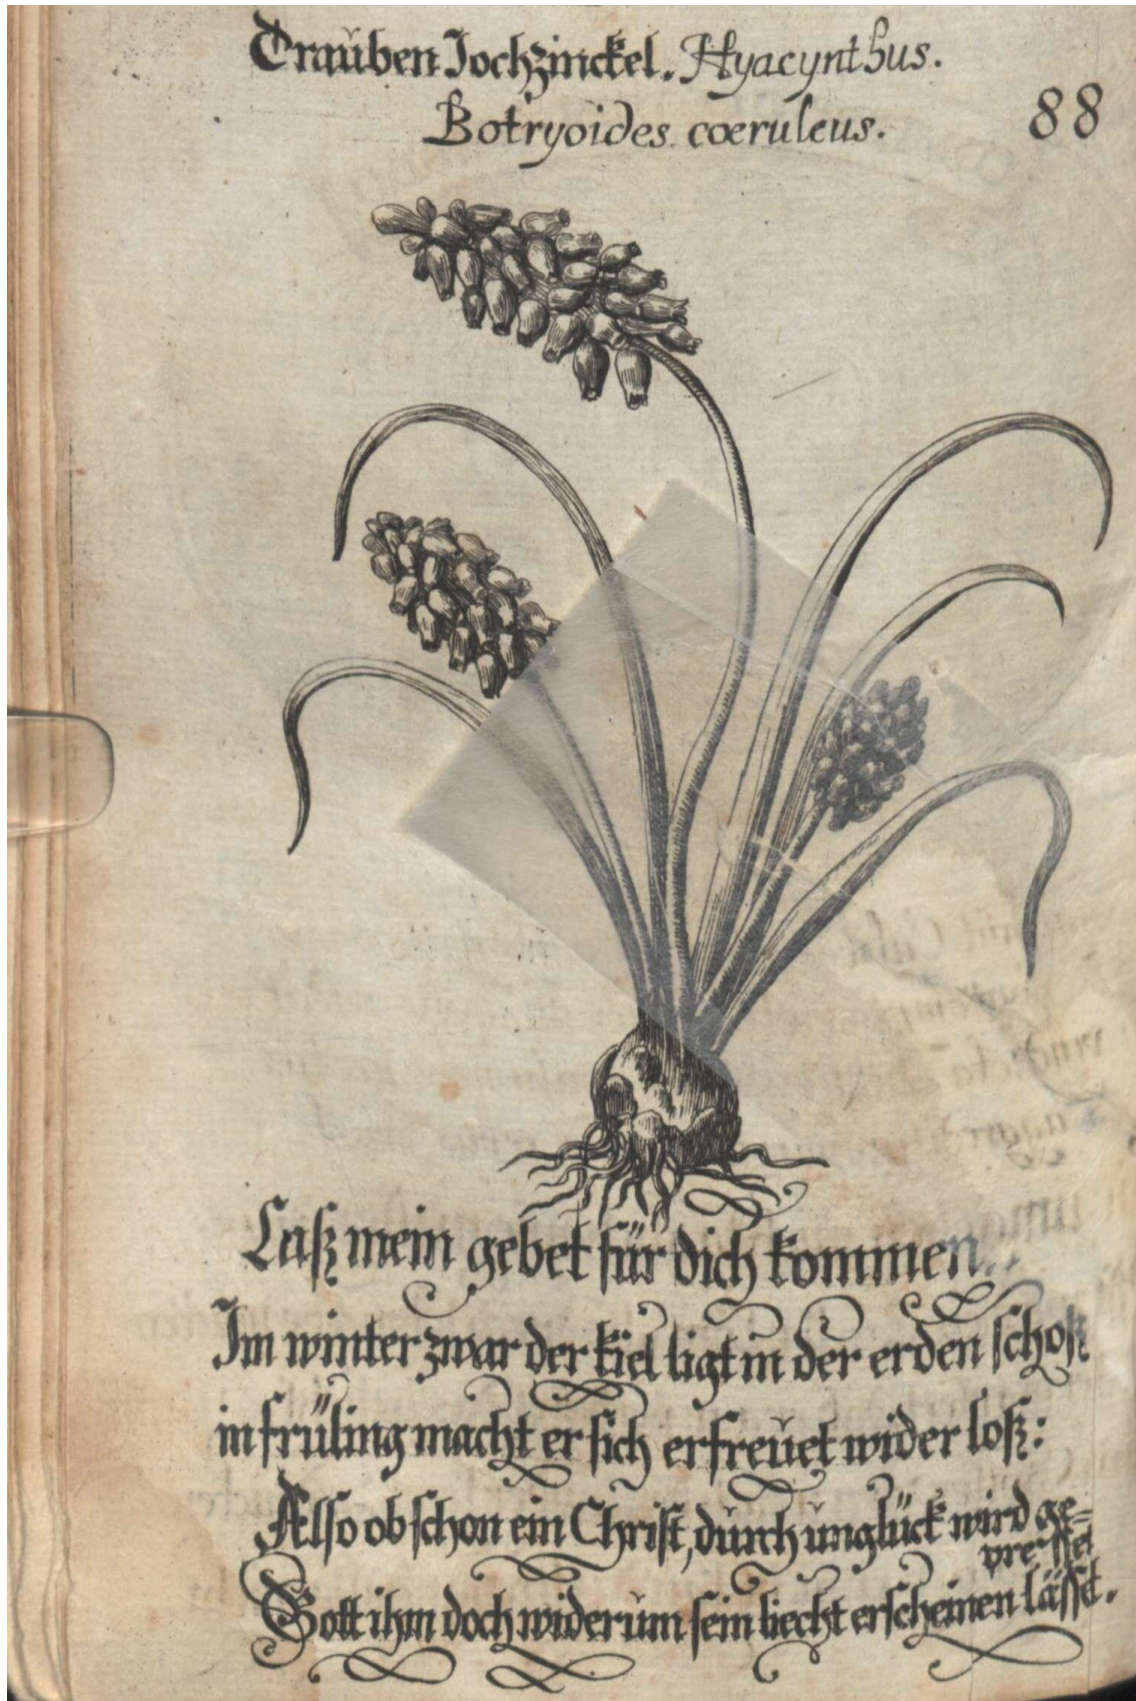 Trauben Jochzinckel. Hyacynthus.
Botryoides cœruleus.
88
Laß mein gebet für dich kommen.
Im winter zwar der kiel ligt in der erden schoß
in früling macht er sich erfreuet wider loß:
Also ob schon ein Christ, durch unglück wird ge=
presset
Gott ihm doch widerum sein liecht erscheinen lässt.